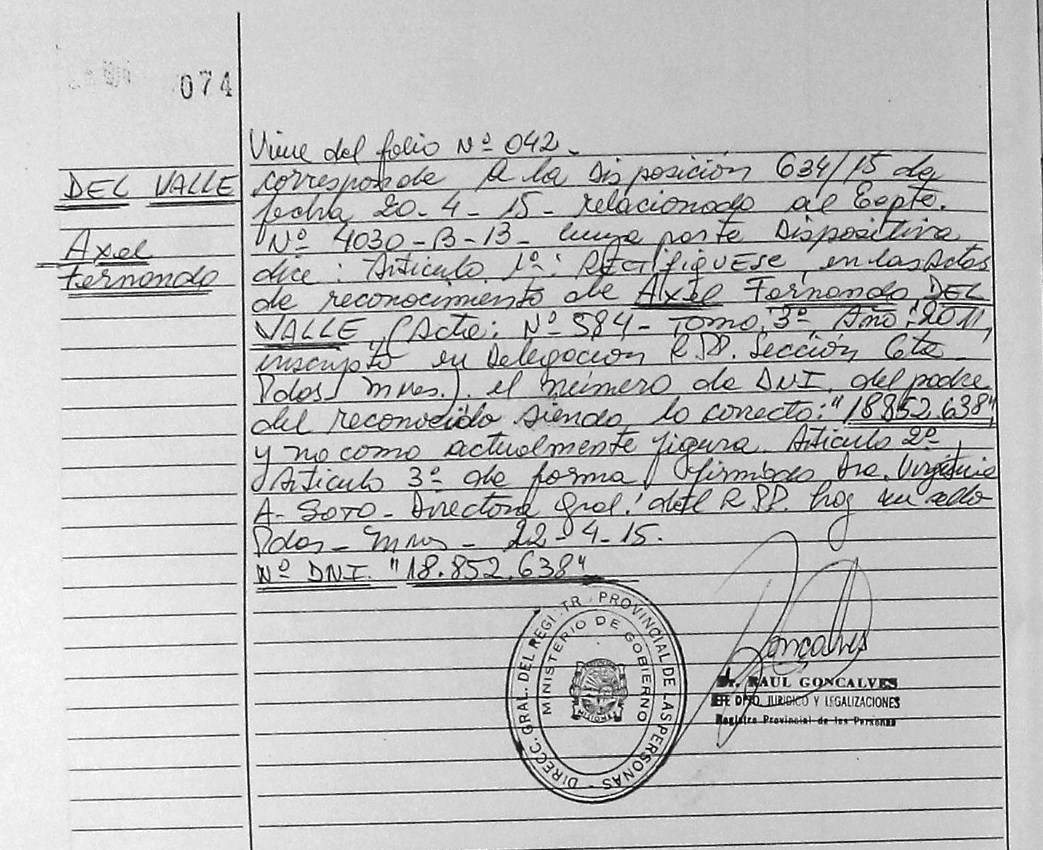 074
DEL VALLE
Axel
Fernando
Viene del folio Nº 042_
corresponde A la Disposición 634/15 de
fecha 20-4-15- relacionado al Expte.
Nº 4030-B-13- cuya parte Dispositiva
dice: Articulo 1º: RECTIFIQUESE, en las Actas
de reconocimiento de Axel Fernando DEL
VALLE, (Acta: Nº 584- Tomo: 3º Año: 2011,
inscripto en Delegacion R.P.P. Sección 6ta
Pdas/ Mnes.). el número de DNI. del padre
del reconocido siendo lo correcto: "18852.638"
y no como actualmente figura. Articulo 2º,
Articulo 3º de forma, firmado Dra. Virginia
A- SOTO- Directora Gral. del R.P.P. hay un sello
Pdas- Mnes- 22-4-15.
Nº DNI. "18.852.638"
DIRECC. GRAL. DEL REGISTR. PROVINCIAL DE LAS PERSONAS
MINISTERIO DE GOBIERNO
MISIONES
Goncalves
Dr. RAUL GONCALVES
JEFE DPTO. JURIDICO Y LEGALIZACIONES
Registro Provincial de las Personas